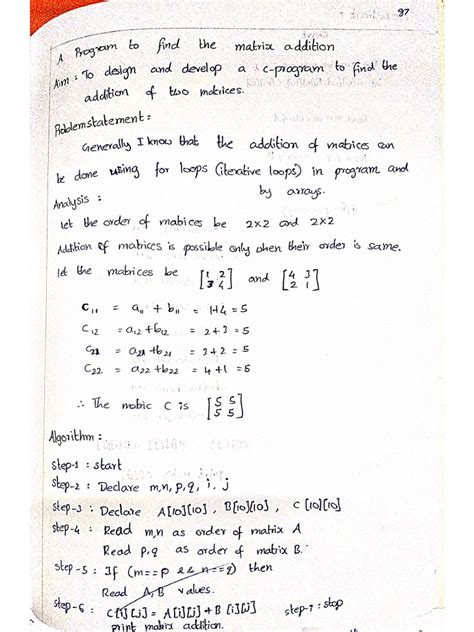 97
A Program to find the matrix addition
Aim : To design and develop a c-program to find the
addition of two matrices.
Problem statement :
Generally I know that the addition of matices can
be done using for loops (iterative loops) in program and
by arrays.
Analysis :
let the order of matices be 2x2 and 2x2
Addition of matrices is possible only when their order is same.
let the matrices be [1 2 3 4] and [4 3 2 1]
C11 = a11 + b11 = 1+4 = 5
C12 = a12 + b12 = 2+3 = 5
C21 = a21 + b21 = 3+2 = 5
C22 = a22 + b22 = 4+1 = 5
∴ The matric C is [5 5 5 5]
Algorithm :
Step-1 : start
Step-2 : Declare m,n, p, q, i, j
Step-3 : Declare A[10][10], B[10][10], C[10][10]
Step-4 : Read m,n as order of matrix A
Read p,q as order of matrix B.
Step-5 : If (m==p && n==q) then
Read A, B values.
Step-6 : C[i][j] = A[i][j] + B[i][j] step-7 : stop
print matrix addition.